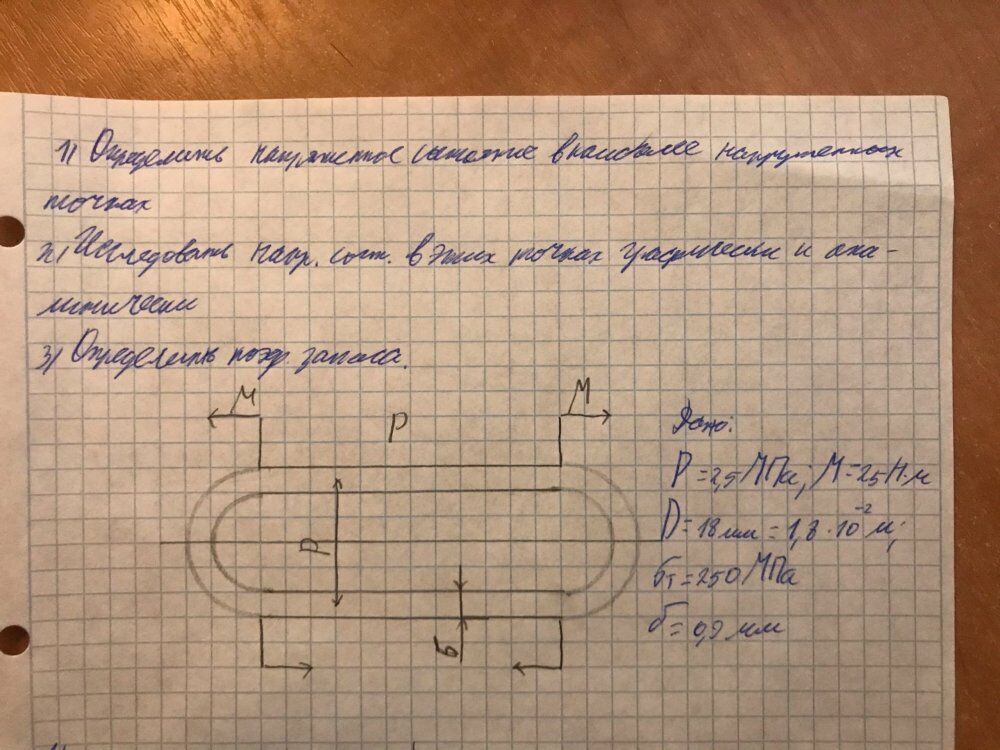 1) Определить напряжённое состояние в наиболее нагруженных
точках
2) Исследовать напр. сост. в этих точках графически и ана-
литически
3) Определить коэф. запаса.
M
M
P
D
δ
Дано:
P = 2,5 МПа; M = 25 Н·м
D = 18 мм = 1,8 · 10⁻² м;
σт = 250 МПа
δ = 0,9 мм